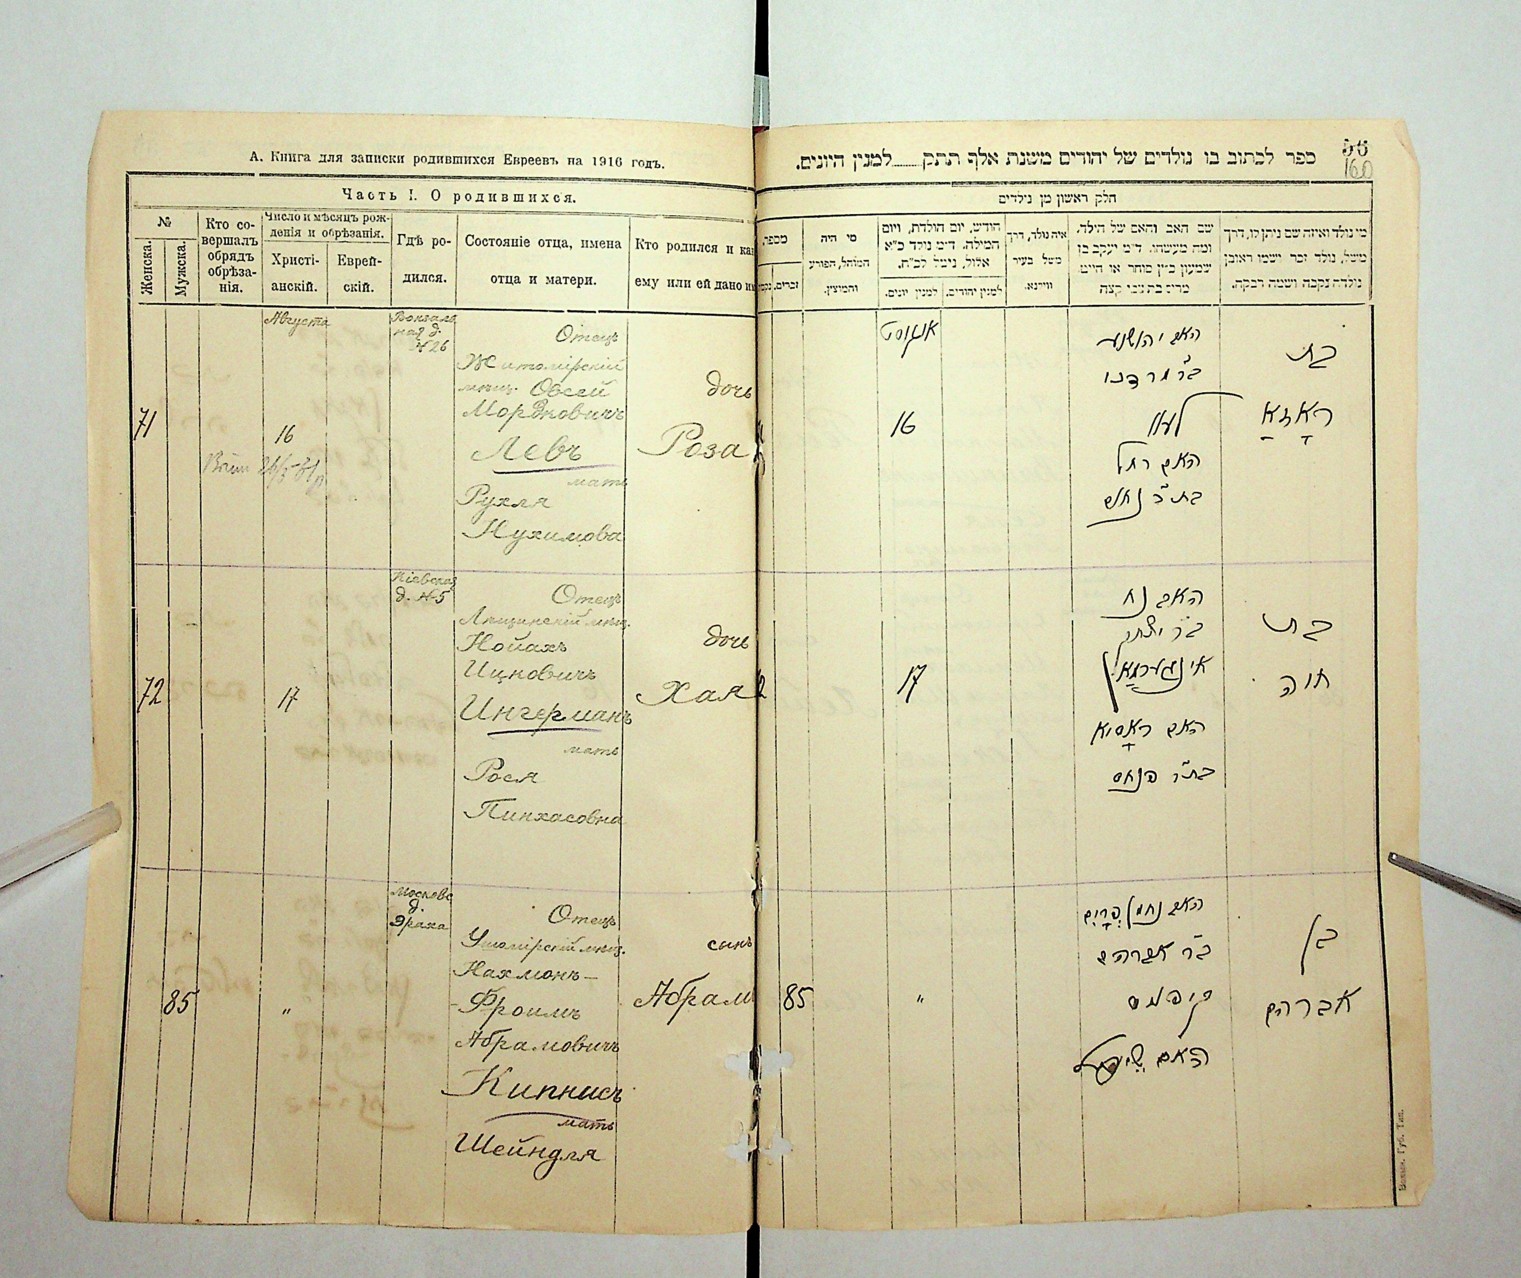 А. Книга для записки родившихся Евреевъ на 1916 годъ.
Часть I. О родившихся.
№
Женска.
Мужска.
Кто со-
вершалъ
обрядъ
обрѣза-
нія.
Число и мѣсяцъ рож-
денія и обрѣзанія.
Христі-
анскій.
Еврей-
скій.
Гдѣ ро-
дился.
Состояніе отца, имена
отца и матери.
Кто родился и ка
ему или ей дано и
71
Августа
16
Вокзаль
ная д.
№ 26
Отецъ
Житомірскій
мѣщ. Овсей
Мордковичъ
Левъ
мать
Рухля
Нухимова
дочь
Роза
72
17
Кіевская
д. №5
Отецъ
мѣщ.
Нойахъ
Ицковичъ
Ингерманъ
мать
Рося
Пинхасовна
дочь
Хая
85
"
Московс
д.
Отецъ
Ушомірскій мѣщ.
Нахманъ-
-Фроимъ
Абрамовичъ
Кипнисъ
мать
Шейндля
сынъ
Абрам
56
160
ספר לכתוב בו נולדים של יהודים משנת אלף תתק למנין היונים.
חלק ראשון מן נולדים
מי נולד ואיזה שם ניתן לו, דרך
משל, נולד זכר ושמו ראובן
נולדה נקבה ושמה רבקה.
שם האב והאם של הילד,
ומה מעשהו. ד״מ יעקב בן
שמעון כ״ץ סוחר או חייט
איה נולד, דרך
משל בעיר
ווילנא.
חודש, יום הולדת, ויום
המילה. ד״מ נולד כ״א
אלול, נימל לכ״ח.
למנין יהודים.
למנין יונים.
מי היה
המוהל, הפורע
והמוצץ.
מספר
זכרים.
בת
ראָזאַ
האב יהושע
ב״ר מרדכי
לעוו
האם רחל
בת ר׳ נחום
אויגוסט
16
בת
חוה
האב נח
ב״ר יצחק
אינגערמאַן
האם ראָסיא
בת״ר פנחס
17
בן
אברהם
האב נחמן אפרים
ב״ר אברהם
קיפניס
האם שיינדל
"
85
Волын. Губ. Тип.